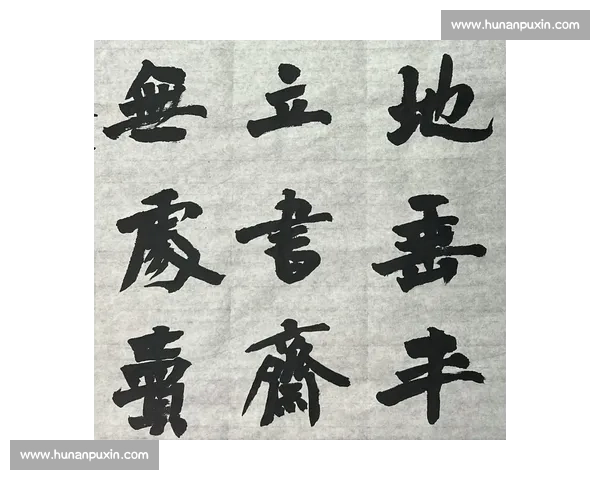 www.hunanpuxin.com
地垂年
立書齋
無處賣
www.hunanpuxin.com